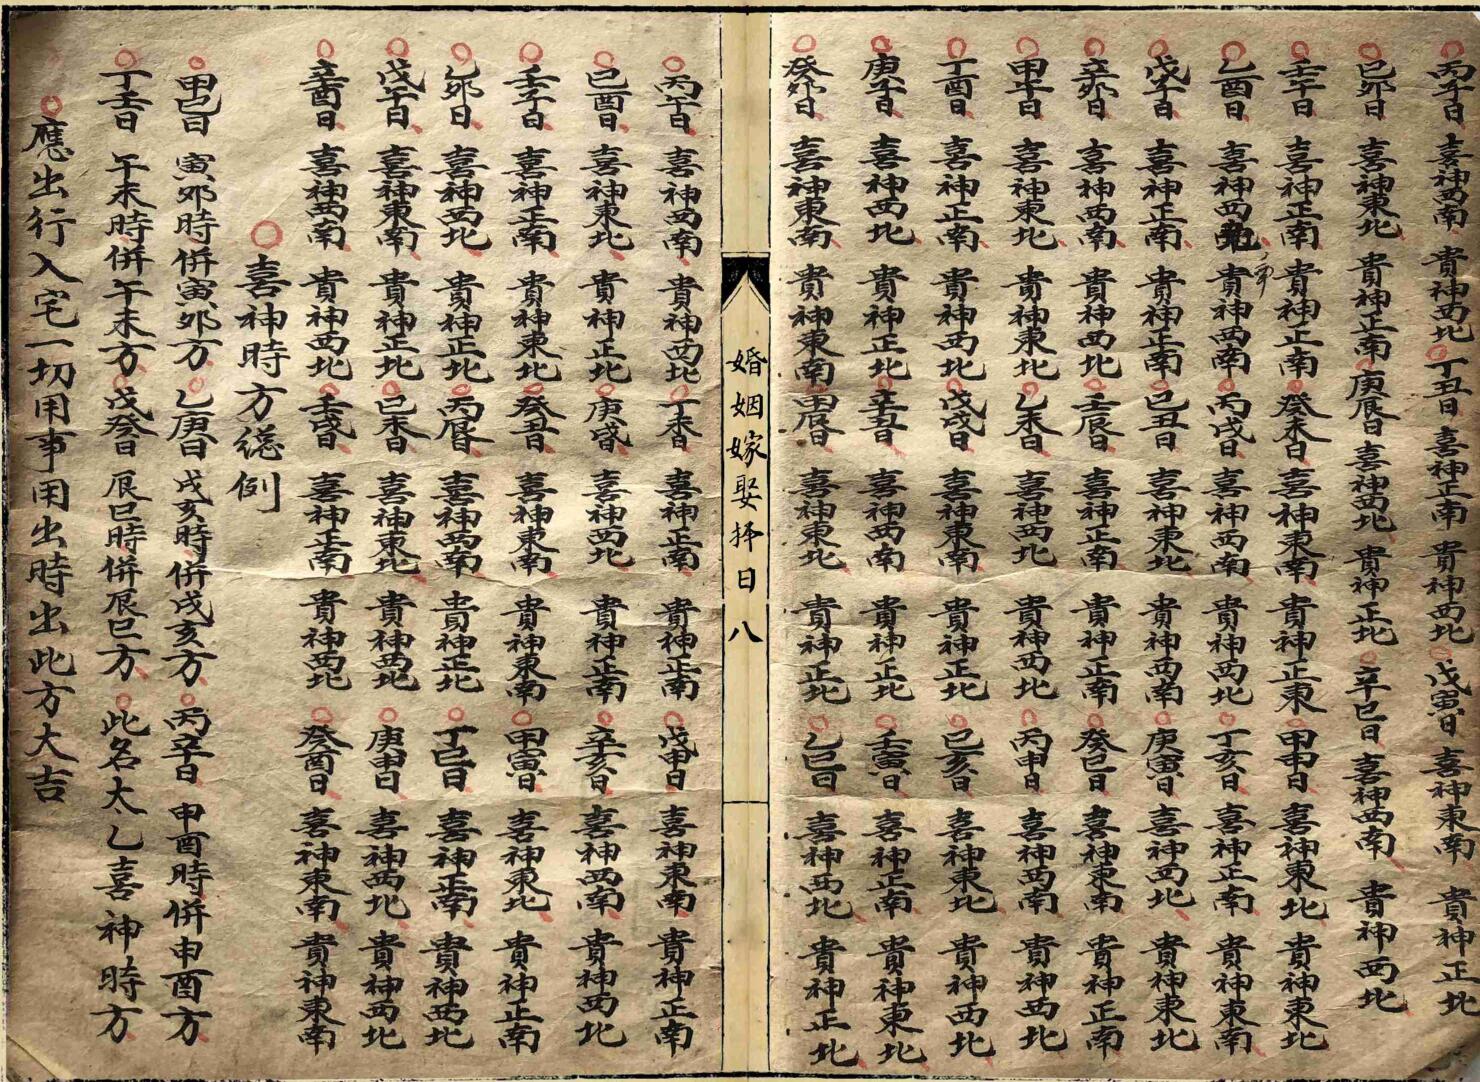 丙子日 喜神西南 貴神西北 丁丑日 喜神正南 貴神西北 戊寅日 喜神東南 貴神正北
己卯日 喜神東北 貴神正南 庚辰日 喜神西北 貴神正北 辛巳日 喜神西南 貴神西北
壬午日 喜神正南 貴神正南 癸未日 喜神東南 貴神正東 甲申日 喜神東北 貴神東北
乙酉日 喜神西北 貴神西南 丙戌日 喜神西南 貴神西北 丁亥日 喜神正南 貴神東南
戊子日 喜神正南 貴神正南 己丑日 喜神東北 貴神西南 庚寅日 喜神西北 貴神東北
辛卯日 喜神西南 貴神西北 壬辰日 喜神正南 貴神正南 癸巳日 喜神東南 貴神正南
甲午日 喜神東北 貴神東北 乙未日 喜神西北 貴神西北 丙申日 喜神西南 貴神西北
丁酉日 喜神正南 貴神西北 戊戌日 喜神東南 貴神正北 己亥日 喜神東北 貴神西北
庚子日 喜神西北 貴神正北 辛丑日 喜神西南 貴神正北 壬寅日 喜神正南 貴神東北
癸卯日 喜神東南 貴神東南 甲辰日 喜神東北 貴神正北 乙巳日 喜神西北 貴神正北
婚姻嫁娶择日 八
丙午日 喜神西南 貴神西北 丁未日 喜神正南 貴神正南 戊申日 喜神東南 貴神正南
己酉日 喜神東北 貴神正北 庚戌日 喜神西北 貴神正南 辛亥日 喜神西南 貴神西北
壬子日 喜神正南 貴神東北 癸丑日 喜神東南 貴神東南 甲寅日 喜神東北 貴神正南
乙卯日 喜神西北 貴神正北 丙辰日 喜神西南 貴神正北 丁巳日 喜神正南 貴神西北
戊午日 喜神東南 貴神正北 己未日 喜神東北 貴神西北 庚申日 喜神西北 貴神西北
辛酉日 喜神西南 貴神西北 壬戌日 喜神正南 貴神西北 癸酉日 喜神東南 貴神東南
喜神時方総例
甲己日 寅卯時併寅卯方 乙庚日 戌亥時併戌亥方 丙辛日 申酉時併申酉方
丁壬日 午未時併午未方 戊癸日 辰巳時併辰巳方 此名太乙喜神時方
應出行入宅一切用事用出時出此方大吉